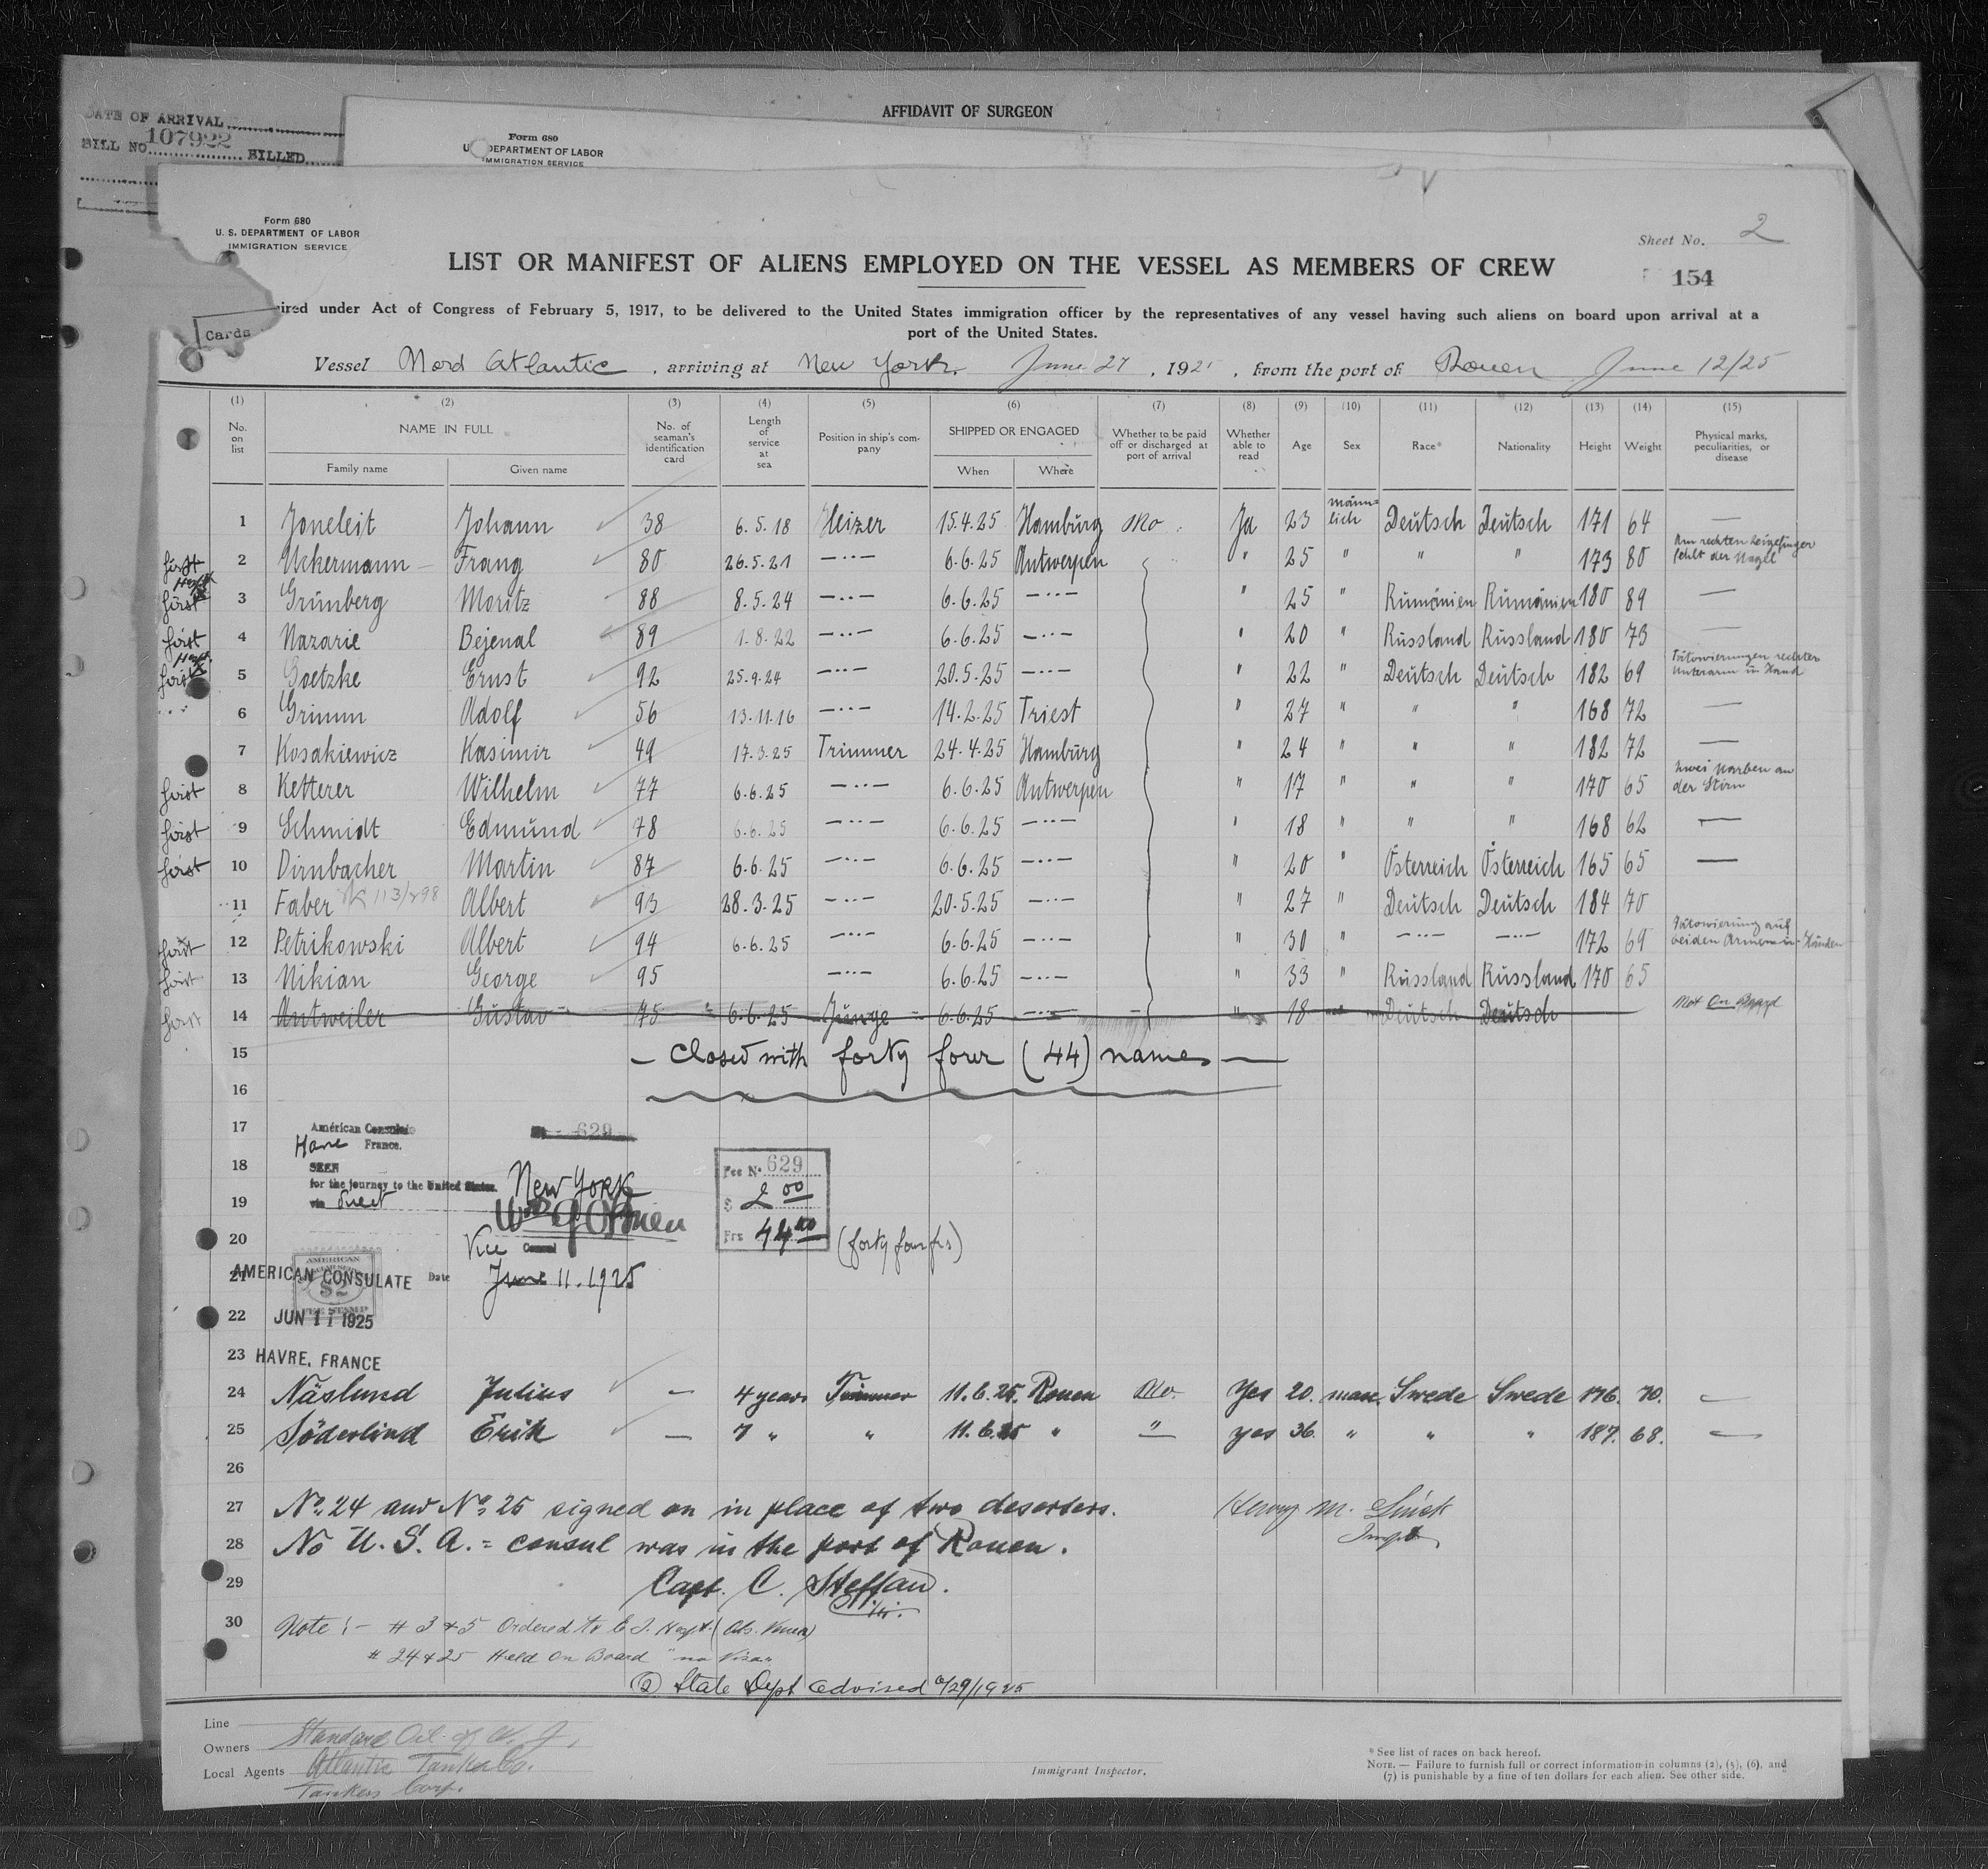 AFFIDAVIT OF SURGEON
DATE OF ARRIVAL
BILL NO. 107922 BILLED
Form 680
U. DEPARTMENT OF LABOR
IMMIGRATION SERVICE
Form 680
U. S. DEPARTMENT OF LABOR
IMMIGRATION SERVICE
Sheet No. 2
LIST OR MANIFEST OF ALIENS EMPLOYED ON THE VESSEL AS MEMBERS OF CREW
154
ired under Act of Congress of February 5, 1917, to be delivered to the United States immigration officer by the representatives of any vessel having such aliens on board upon arrival at a
Cards
port of the United States.
Vessel Nord Atlantic, arriving at New York, June 27, 192, from the port of Rouen June 12/25
(1) (2) (3) (4) (5) (6) (7) (8) (9) (10) (11) (12) (13) (14) (15)
No. on list NAME IN FULL Family name Given name No. of seaman's identification card Length of service at sea Position in ship's company SHIPPED OR ENGAGED When Where Whether to be paid off or discharged at port of arrival Whether able to read Age Sex Race* Nationality Height Weight Physical marks, peculiarities, or disease
1 Joneleit Johann 38 6.5.18 Heizer 15.4.25 Hamburg No Ja 23 männlich Deutsch Deutsch 171 64 —
first 2 Uckermann Franz 80 26.5.21 —"— 6.6.25 Antwerpen " 25 " " " 173 80 Am rechten Zeigefinger fehlt der Nagel
first 3 Grünberg Moritz 88 8.5.24 —"— 6.6.25 —"— " 25 " Rumänien Rumänien 180 89 —
first 4 Nazarie Bejenal 89 1.8.22 —"— 6.6.25 —"— " 20 " Russland Russland 180 73 —
first 5 Goetzke Ernst 92 25.9.24 —"— 20.5.25 —"— " 22 " Deutsch Deutsch 182 69 Tätowierungen rechter Unterarm u Hand
6 Grimm Adolf 56 13.11.16 —"— 14.2.25 Triest " 27 " " " 168 72 —
7 Kosakiewicz Kasimir 49 17.3.25 Trimmer 24.4.25 Hamburg " 24 " " " 182 72 —
first 8 Ketterer Wilhelm 77 6.6.25 —"— 6.6.25 Antwerpen " 17 " " " 170 65 Zwei Narben an der Stirn
first 9 Schmidt Edmund 78 6.6.25 —"— 6.6.25 —"— " 18 " " " 168 62 —
first 10 Dirnbacher Martin 87 6.6.25 —"— 6.6.25 —"— " 20 " Österreich Österreich 165 65 —
11 Faber Albert 93 28.3.25 —"— 20.5.25 —"— " 27 " Deutsch Deutsch 184 70
first 12 Petrikowski Albert 94 6.6.25 —"— 6.6.25 —"— " 30 " —"— —"— 172 69 Tätowierung auf beiden Armen u Händen
first 13 Nikian George 95 —"— 6.6.25 —"— " 33 " Russland Russland 170 65
first 14 Antweiler Gustav 75 6.6.25 Junge 6.6.25 —"— " 18 Deutsch Deutsch Not On Board
15 — Closed with forty four (44) names —
16
17 American Consulate 629
Havre France.
18 SEEN
for the journey to the United States. New York
Fee No. 629
19 via direct
$ 2 00
Wm J O'Brien
Frs 44 00 (forty four frs)
20 Vice Consul
21 AMERICAN CONSULATE Date June 11. 1925
AMERICAN $2 FEE STAMP
22 JUN 11 1925
23 HAVRE, FRANCE
24 Näslund Julius — 4 years Trimmer 11.6.25. Rouen No. Yes 20. man. Swede Swede 176. 70. —
25 Söderlind Erik — 7 " " 11.6.25 " " yes 36. " " " 187. 68. —
26
27 No. 24 and No. 25 signed on in place of two deserters.
Henry M. Linck
28 No U. S. A. = consul was in the port of Rouen.
Inspt.
29 Capt. C. Steffan.
30 Note :- # 3 & 5 Ordered to E. I. Hospt.
# 24 & 25 Held On Board "no Visa"
② State Dept advised 6/29/1925
Line
Owners Standard Oil of N. J.
Local Agents Atlantic Tanker Co.
Tankers Corp.
Immigrant Inspector.
* See list of races on back hereof.
NOTE. — Failure to furnish full or correct information in columns (2), (5), (6), and
(7) is punishable by a fine of ten dollars for each alien. See other side.